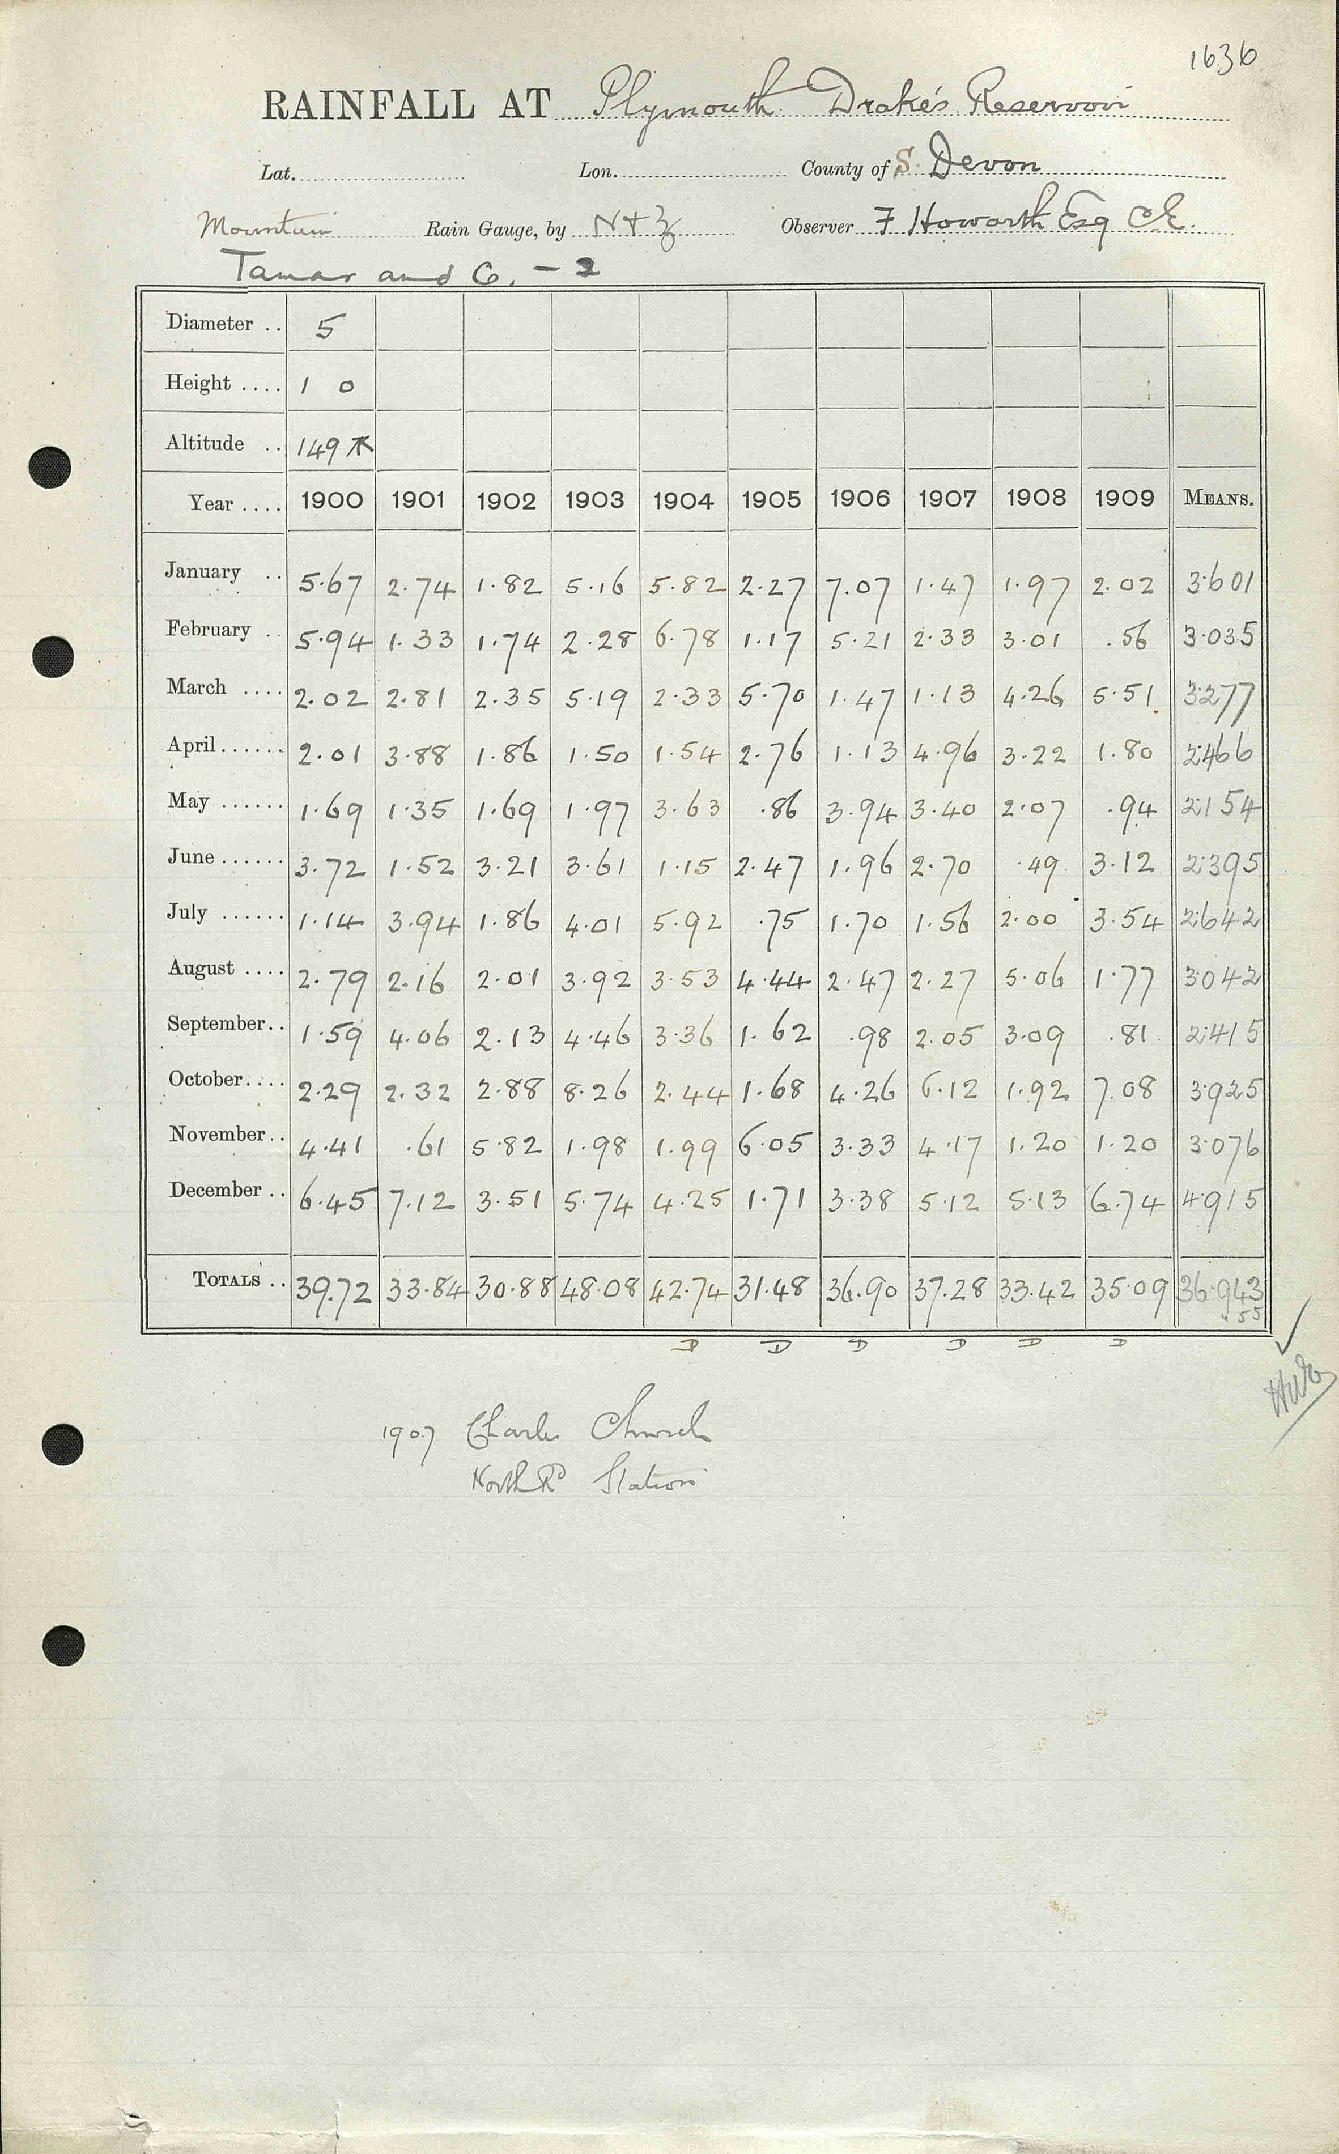 1636
RAINFALL AT Plymouth Drake's Reservoir
Lat. Lon. County of S. Devon
Mountain Rain Gauge, by N+Z Observer F Howorth Esq C.E.
Tamar and C. – 2
Diameter .. 5
Height .... 1 0
Altitude .. 149
Year .... 1900 1901 1902 1903 1904 1905 1906 1907 1908 1909 MEANS.
January .. 5.67 2.74 1.82 5.16 5.82 2.27 7.07 1.47 1.97 2.02 3.601
February .. 5.94 1.33 1.74 2.28 6.78 1.17 5.21 2.33 3.01 .56 3.035
March .... 2.02 2.81 2.35 5.19 2.33 5.70 1.47 1.13 4.26 5.51 3.277
April ...... 2.01 3.88 1.86 1.50 1.54 2.76 1.13 4.96 3.22 1.80 2.466
May ...... 1.69 1.35 1.69 1.97 3.63 .86 3.94 3.40 2.07 .94 2.154
June ...... 3.72 1.52 3.21 3.61 1.15 2.47 1.96 2.70 .49 3.12 2.395
July ...... 1.14 3.94 1.86 4.01 5.92 .75 1.70 1.56 2.00 3.54 2.642
August .... 2.79 2.16 2.01 3.92 3.53 4.44 2.47 2.27 5.06 1.77 3.042
September .. 1.59 4.06 2.13 4.46 3.36 1.62 .98 2.05 3.09 .81 2.415
October .... 2.29 2.32 2.88 8.26 2.44 1.68 4.26 6.12 1.92 7.08 3.925
November .. 4.41 .61 5.82 1.98 1.99 6.05 3.33 4.17 1.20 1.20 3.076
December .. 6.45 7.12 3.51 5.74 4.25 1.71 3.38 5.12 5.13 6.74 4.915
TOTALS .. 39.72 33.84 30.88 48.08 42.74 31.48 36.90 37.28 33.42 35.09 36.943
55
D D D D D D
1907 Charles Church
North Rd Station